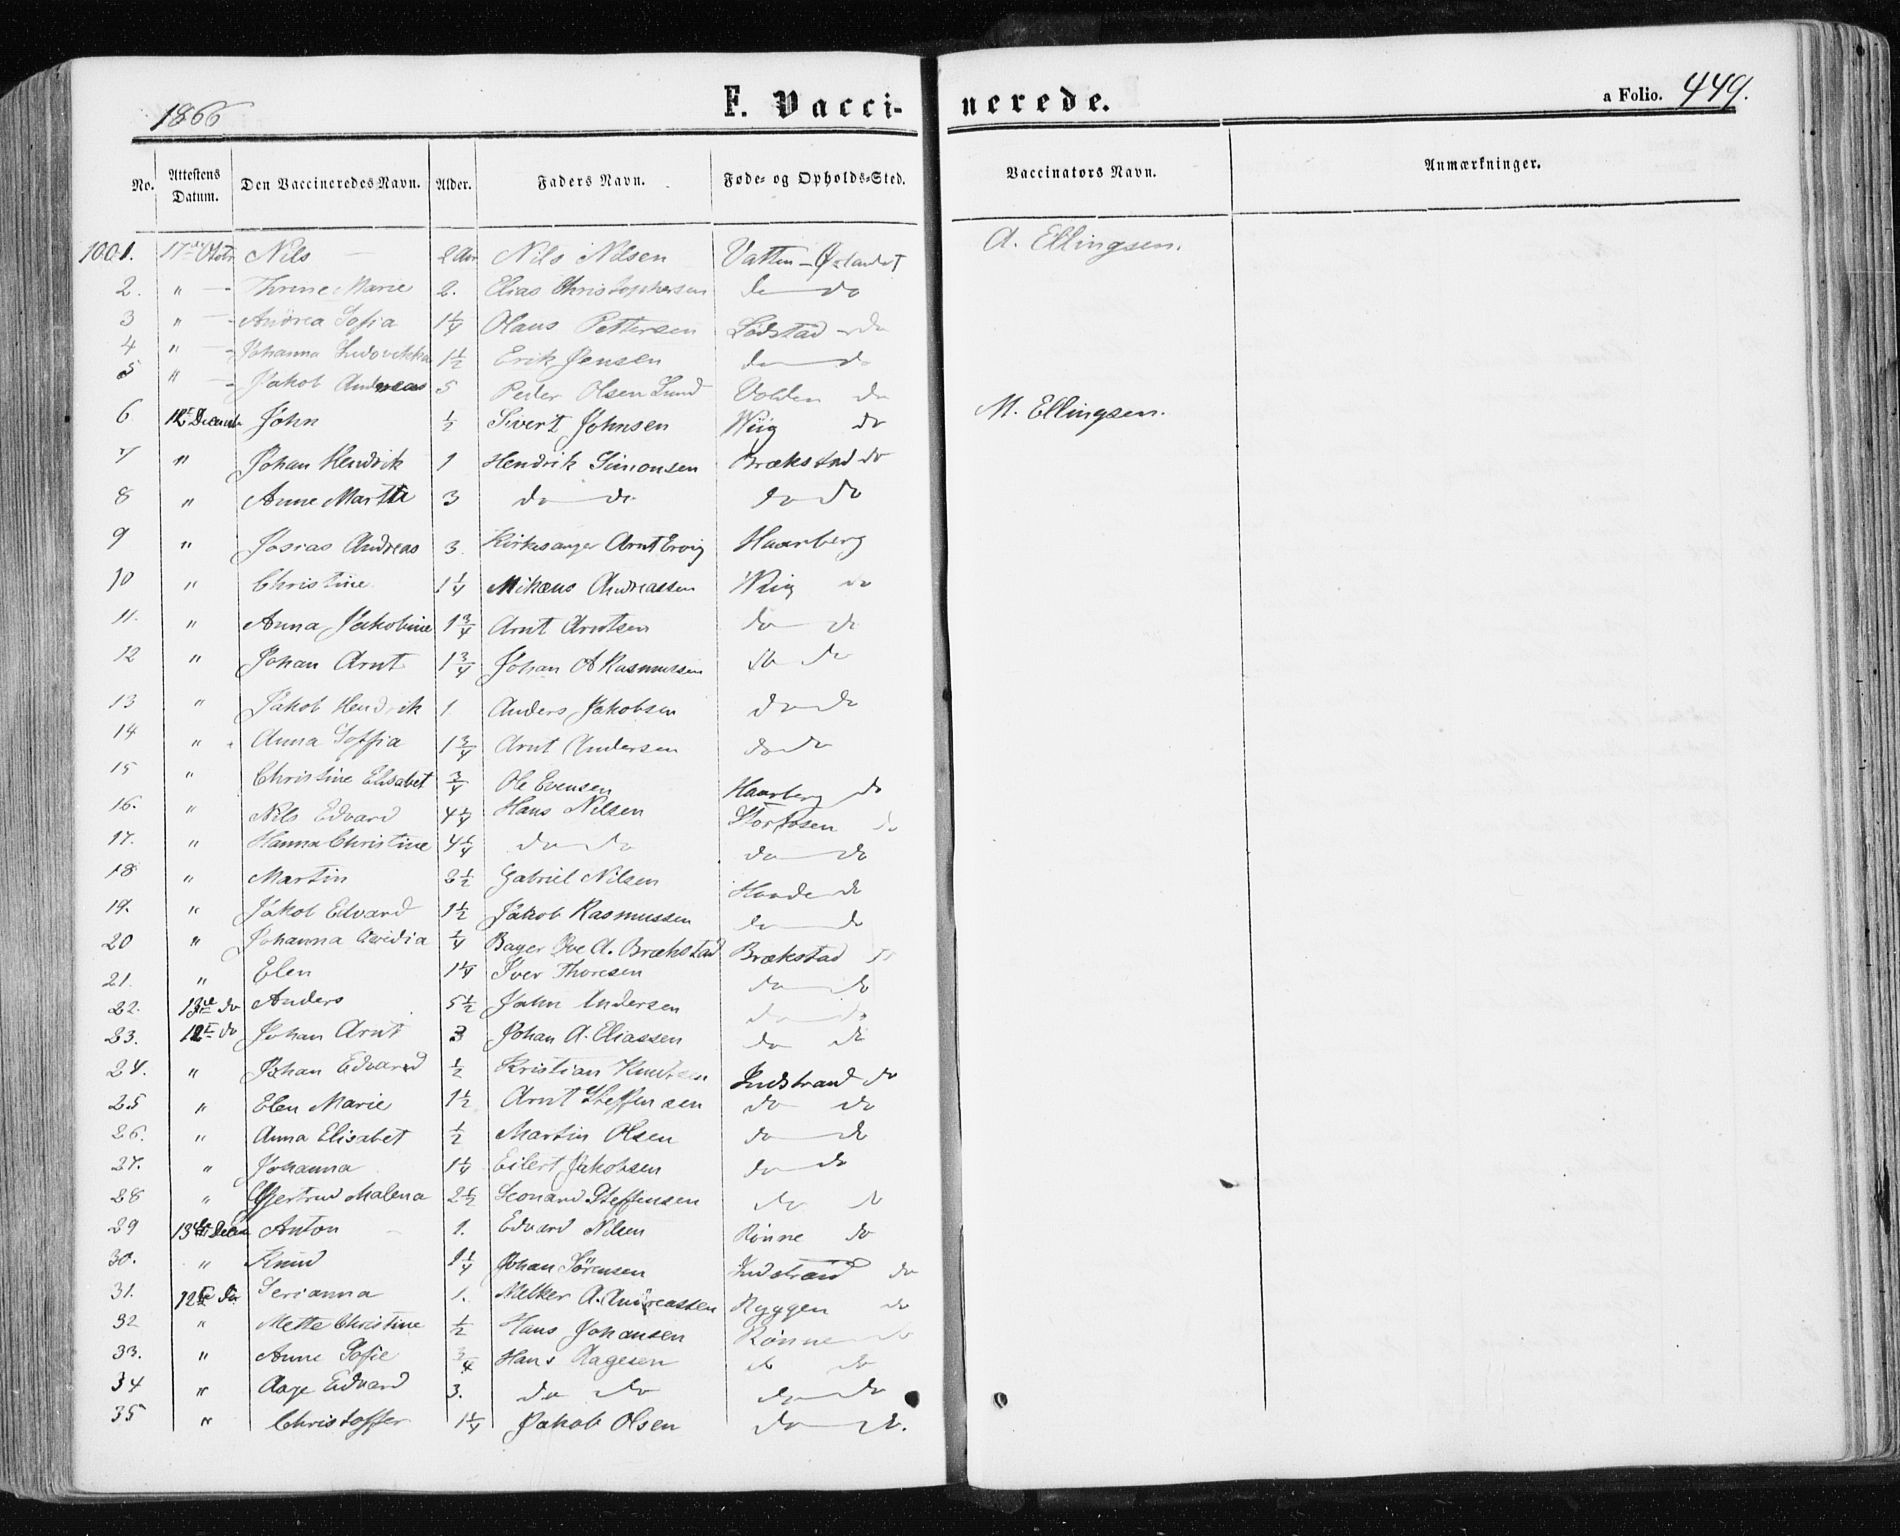 1866 F. Vacci- nerede. a Folio. 449.
No. Attestens Datum. Den Vaccineredes Navn. Alder. Faders Navn. Føde- og Opholds-Sted. Vaccinators Navn. Anmærkninger.
1001. 17de Nils 2 Aar Nils Nilsen Vatten - Ørlandet A. Ellingsen.
2. " Marie 2. Elias Christophersen do do
3 " Andrea Sofia 1 1/4 Olaus Pettersen do
4 " Johanna Ludovikka 1 1/2 Erik Jensen do do
5 " Jakob Andreas 5 Peder Olsen Lund Volden do
6 12te Decemb John 1/2 Sivert Johnsen Wiig do M. Ellingsen.
7 " Johan Hendrik 1 Hendrik Simonsen Brækstad do
8 " Anne Marta 3 do do do do
9 " Josias Andreas 3. Kirkesanger Arnt Ervig Haarberg
10 " Christine 1 1/4 Mikæus Andreassen Wiig do
11. " Anna Jakobine 1 3/4 Arnt Arntsen do do
12 " Johan Arnt 1 3/4 Johan A Rasmussen do do
13 " Jakob Hendrik 1. Anders Jakobsen do do
14 " Anna Soffia 1 3/4 Arnt Andersen do do
15 " Christine Elisabet 3/4 Ole Evensen Haarberg do
16. " Nils Edvard 4 1/4 Hans Nilsen Storfosen do
17. " Hanna Christine 4 1/4 do do do do
18 " Martin 2 1/2 Gabriel Nilsen do
19. " Jakob Edvard 1 1/2 Jakob Rasmussen do do
20 " Johanna 1/4 A. Brækstad Brækstad do
21. " Elen 1 1/4 Iver Thoresen do do
22. 13de do Anders 5 1/2 John Andersen do do
23. 12te do Johan Arnt 3 Johan A. Eliassen do do
24. " Johan Edvard 1/2 Kristian Knutsen Indstrand do
25 " Elen Marie 1 1/2 Arnt Steffensen do do
26. " Anna Elisabet 1/2 Martin Olsen do do
27. " Johanna 1 1/4 Eilert Jakobsen do do
28 " Gjertrud Malena 2 1/2 Leonard Steffensen do do
29 13de Decem Anton 1. Edvard Nilsen Rønne do
30. " Knud 1 1/4 Johan Sørensen Indstrand do
31. 12te do Serianna 1. Melker A. Andreassen Ryggen do
32 " Mette Christine 1/2 Hans Johansen Rønne do
33. " Anne Sofie 3/4 Hans Aagesen do do
34 " Aage Edvard 3. do do do do
35 " Christoffer 1 1/4 Jakob Olsen do do.